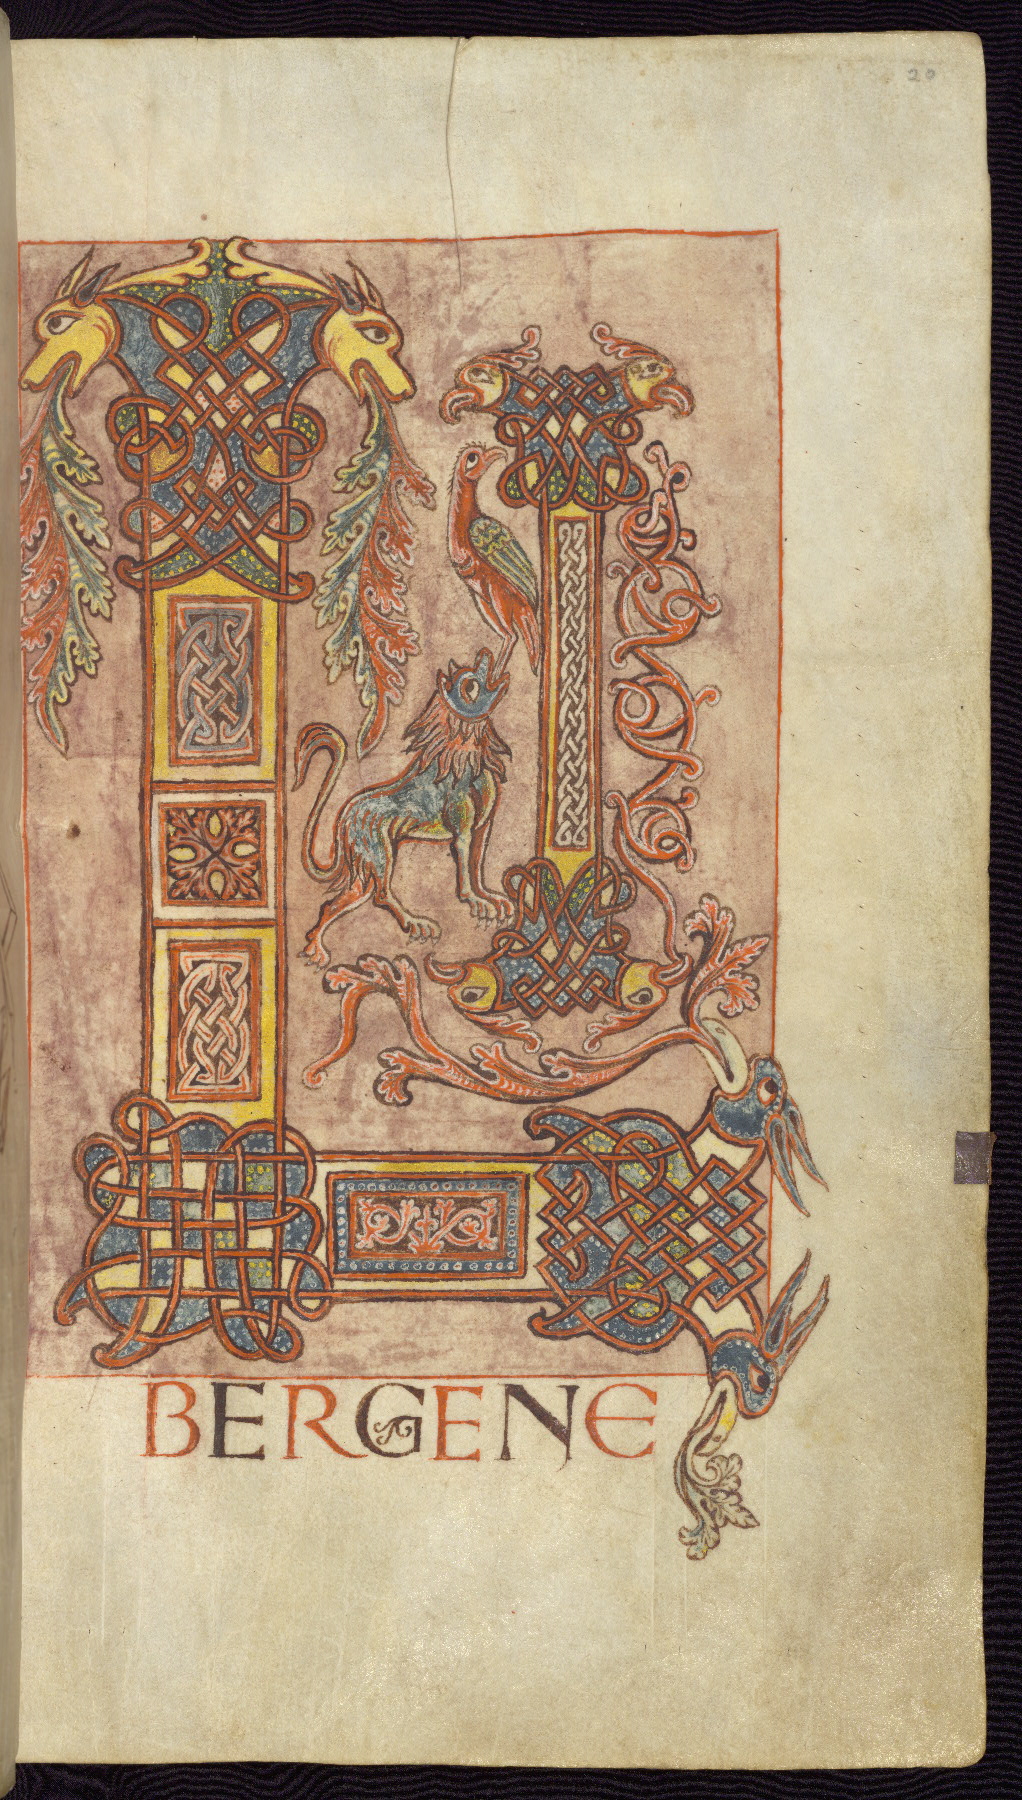 20
LI
BERGENE